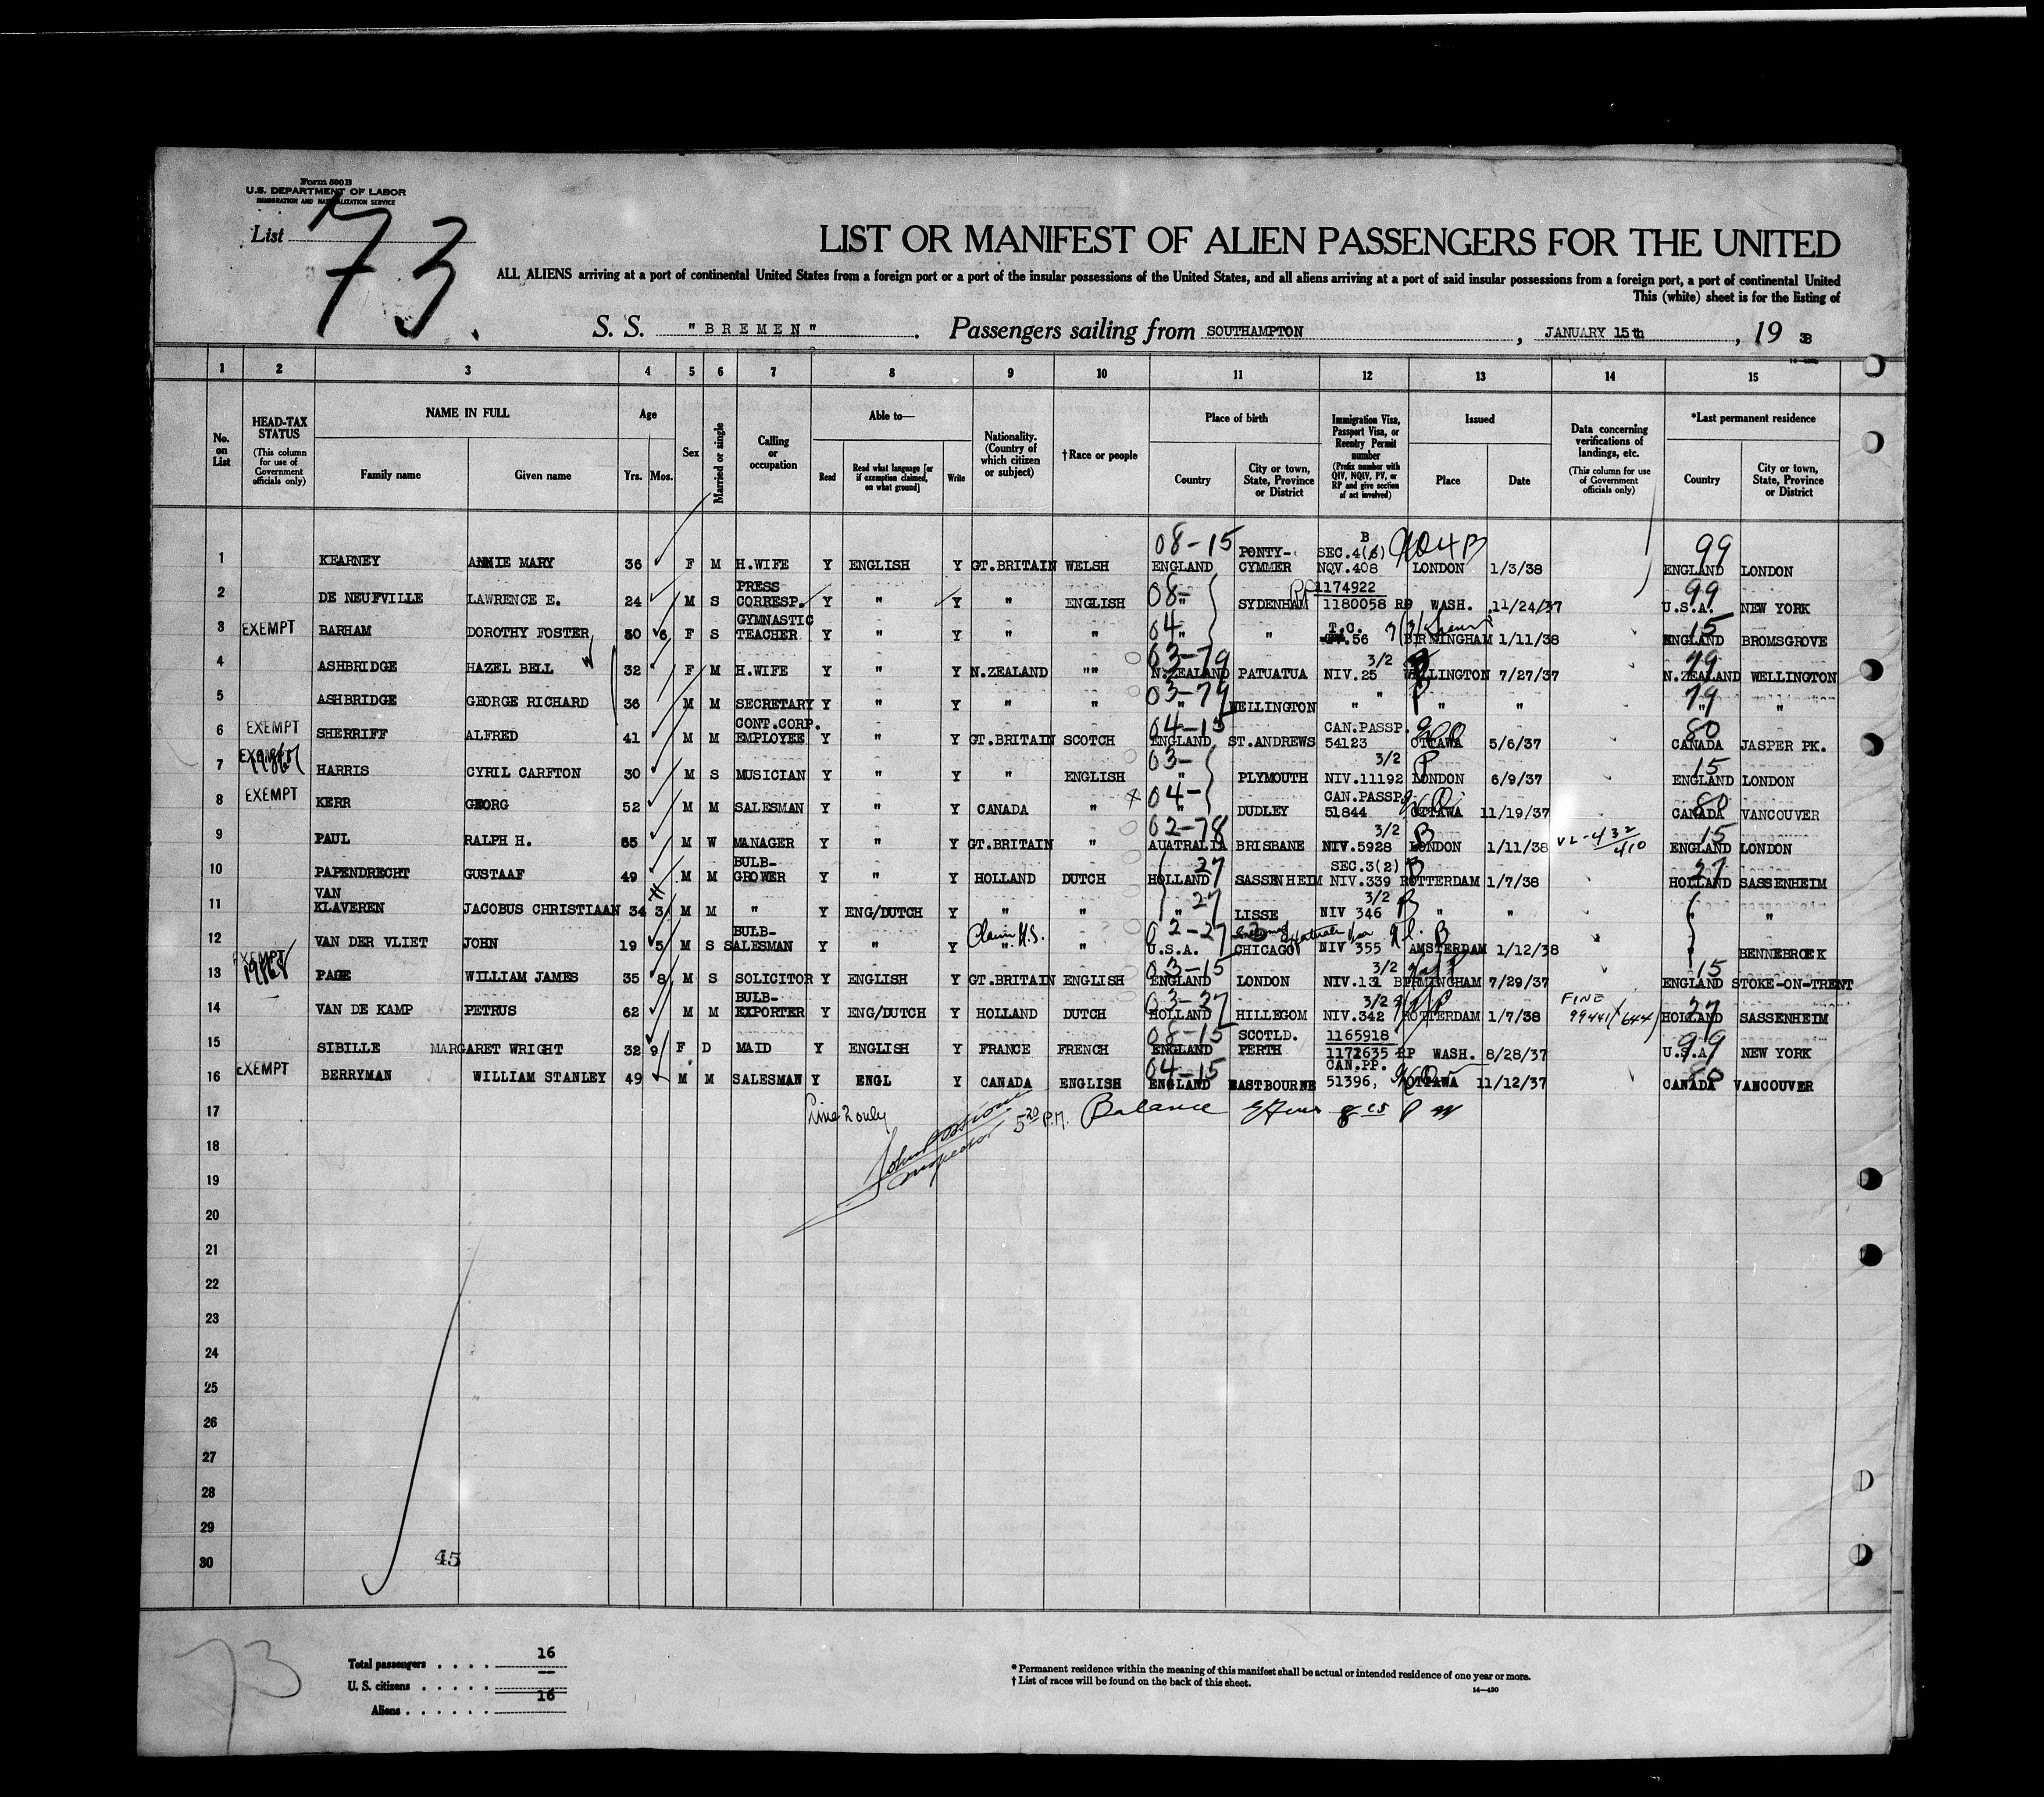 Form 500B
U.S. DEPARTMENT OF LABOR
IMMIGRATION AND NATURALIZATION SERVICE
List 73.
LIST OR MANIFEST OF ALIEN PASSENGERS FOR THE UNITED
ALL ALIENS arriving at a port of continental United States from a foreign port or a port of the insular possessions of the United States, and all aliens arriving at a port of said insular possessions from a foreign port, a port of continental United
This (white) sheet is for the listing of
S. S. "BREMEN". Passengers sailing from SOUTHAMPTON, JANUARY 15th, 19 38
1 2 3 4 5 6 7 8 9 10 11 12 13 14 15
No. on List
HEAD-TAX STATUS (This column for use of Government officials only)
NAME IN FULL Family name Given name
Age Yrs. Mos.
Sex
Married or single
Calling or occupation
Able to— Read Read what language [or if exemption claimed, on what ground] Write
Nationality. (Country of which citizen or subject)
†Race or people
Place of birth Country City or town, State, Province or District
Immigration Visa, Passport Visa, or Reentry Permit number (Prefix number with QIV, NQIV, PV, or RP and give section of act involved)
Issued Place Date
Data concerning verifications of landings, etc. (This column for use of Government officials only)
*Last permanent residence Country City or town, State, Province or District
1 KEARNEY ANNIE MARY 36 F M H.WIFE Y ENGLISH Y GT.BRITAIN WELSH 08-15 ENGLAND PONTY-CYMMER B SEC.4(6) NQV.408 404B LONDON 1/3/38 99 ENGLAND LONDON
2 DE NEUFVILLE LAWRENCE E. 24 M S PRESS CORRESP. Y " Y " ENGLISH 08- " SYDENHAM RP 1174922 1180058 RP WASH. 11/24/37 99 U.S.A. NEW YORK
3 EXEMPT BARHAM DOROTHY FOSTER 30 6 F S GYMNASTIC TEACHER Y " Y " " 04 " " T.C. 56 BIRMINGHAM 1/11/38 15 ENGLAND BROMSGROVE
4 ASHBRIDGE HAZEL BELL 32 F M H.WIFE Y " Y N.ZEALAND "" 03-79 N.ZEALAND PATUATUA 3/2 NIV.25 WELLINGTON 7/27/37 79 N.ZEALAND WELLINGTON
5 ASHBRIDGE GEORGE RICHARD 36 M M SECRETARY Y " Y " " 03-79 " WELLINGTON " " " 79 " "
6 EXEMPT SHERRIFF ALFRED 41 M M CONT.CORP. EMPLOYEE Y " Y GT.BRITAIN SCOTCH 04-15 ENGLAND ST.ANDREWS CAN.PASSP. 54123 OTTAWA 5/6/37 80 CANADA JASPER PK.
7 EXEMPT HARRIS CYRIL CARFTON 30 M S MUSICIAN Y " Y " ENGLISH 03- " PLYMOUTH 3/2 NIV.11192 LONDON 6/9/37 15 ENGLAND LONDON
8 EXEMPT KERR GEORG 52 M M SALESMAN Y " Y CANADA " X 04- " DUDLEY CAN.PASSP. 51844 OTTAWA 11/19/37 80 CANADA VANCOUVER
9 PAUL RALPH H. 65 M W MANAGER Y " Y GT.BRITAIN " 02-78 AUATRALIA BRISBANE 3/2 NIV.5928 LONDON 1/11/38 VL-432/410 15 ENGLAND LONDON
10 PAPENDRECHT GUSTAAF 49 M M BULB-GROWER Y " Y HOLLAND DUTCH 27 HOLLAND SASSENHEIM SEC.3(2) NIV.339 ROTTERDAM 1/7/38 27 HOLLAND SASSENHEIM
11 VAN KLAVEREN JACOBUS CHRISTIAAN 34 3 M M " Y ENG/DUTCH Y " " 27 " LISSE 3/2 NIV 346 " " "
12 VAN DER VLIET JOHN 19 5 M S BULB-SALESMAN Y " Y Claim U.S. " " 02-27 U.S.A. CHICAGO NIV 355 AMSTERDAM 1/12/38 " BENNEBROEK
13 EXEMPT PAGE WILLIAM JAMES 35 8 M S SOLICITOR Y ENGLISH Y GT.BRITAIN ENGLISH 03-15 ENGLAND LONDON 3/2 NIV.131 BIRMINGHAM 7/29/37 15 ENGLAND STOKE-ON-TRENT
14 VAN DE KAMP PETRUS 62 M M BULB-EXPORTER Y ENG/DUTCH Y HOLLAND DUTCH 03-27 HOLLAND HILLEGOM 3/2 NIV.342 ROTTERDAM 1/7/38 FINE 99441/644 27 HOLLAND SASSENHEIM
15 SIBILLE MARGARET WRIGHT 32 9 F D MAID Y ENGLISH Y FRANCE FRENCH 08-15 ENGLAND SCOTLD. PERTH 1165918 1172635 RP WASH. 8/28/37 99 U.S.A. NEW YORK
16 EXEMPT BERRYMAN WILLIAM STANLEY 49 M M SALESMAN Y ENGL Y CANADA ENGLISH 04-15 ENGLAND EASTBOURNE CAN.PP. 51396, OTTAWA 11/12/37 80 CANADA VANCOUVER
17 Line 2 only 5 20 P.M. Balance 8 25 P M
Inspector
18
19
20
21
22
23
24
25
26
27
28
29
30
45
73
Total passengers . . . . 16
U. S. citizens . . . . . —
Aliens . . . . . . 16
* Permanent residence within the meaning of this manifest shall be actual or intended residence of one year or more.
† List of races will be found on the back of this sheet.
14—430